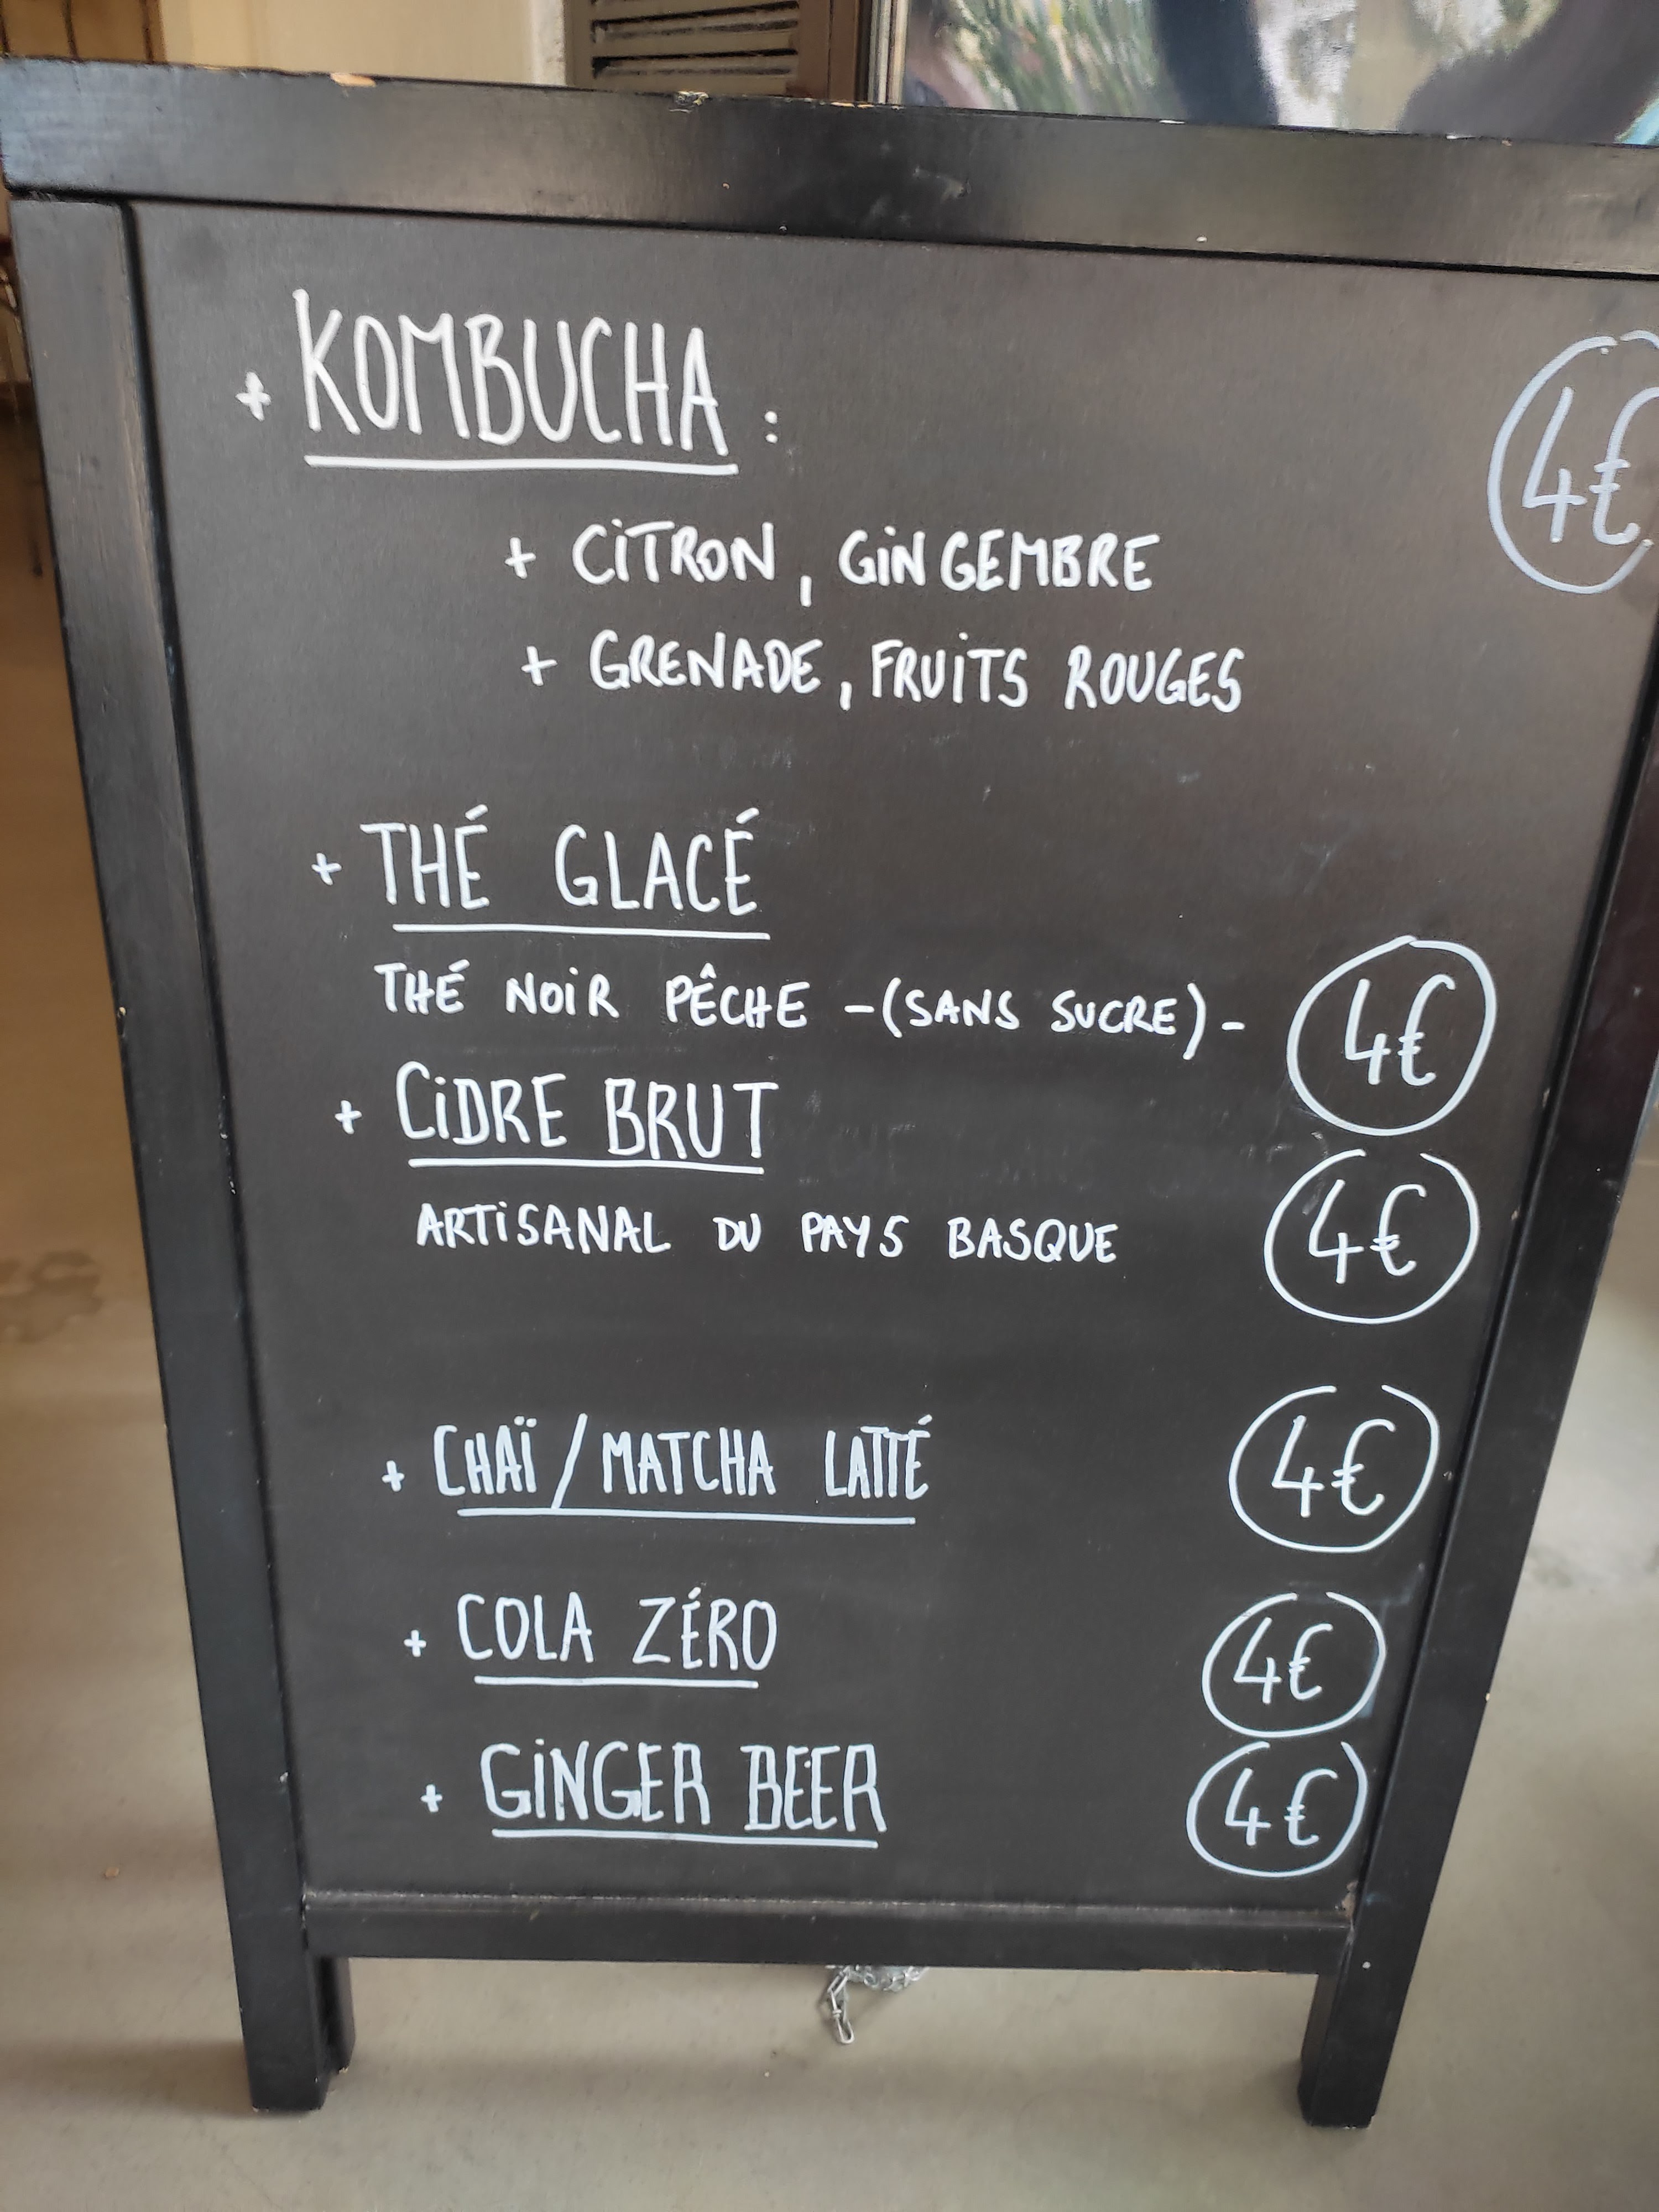 + KOMBUCHA : 4€
+ CITRON, GINGEMBRE
+ GRENADE, FRUITS ROUGES
+ THÉ GLACÉ
THÉ NOIR PÊCHE -(SANS SUCRE)- 4€
+ CIDRE BRUT
ARTISANAL DU PAYS BASQUE 4€
+ CHAÏ / MATCHA LATTÉ 4€
+ COLA ZÉRO 4€
+ GINGER BEER 4€